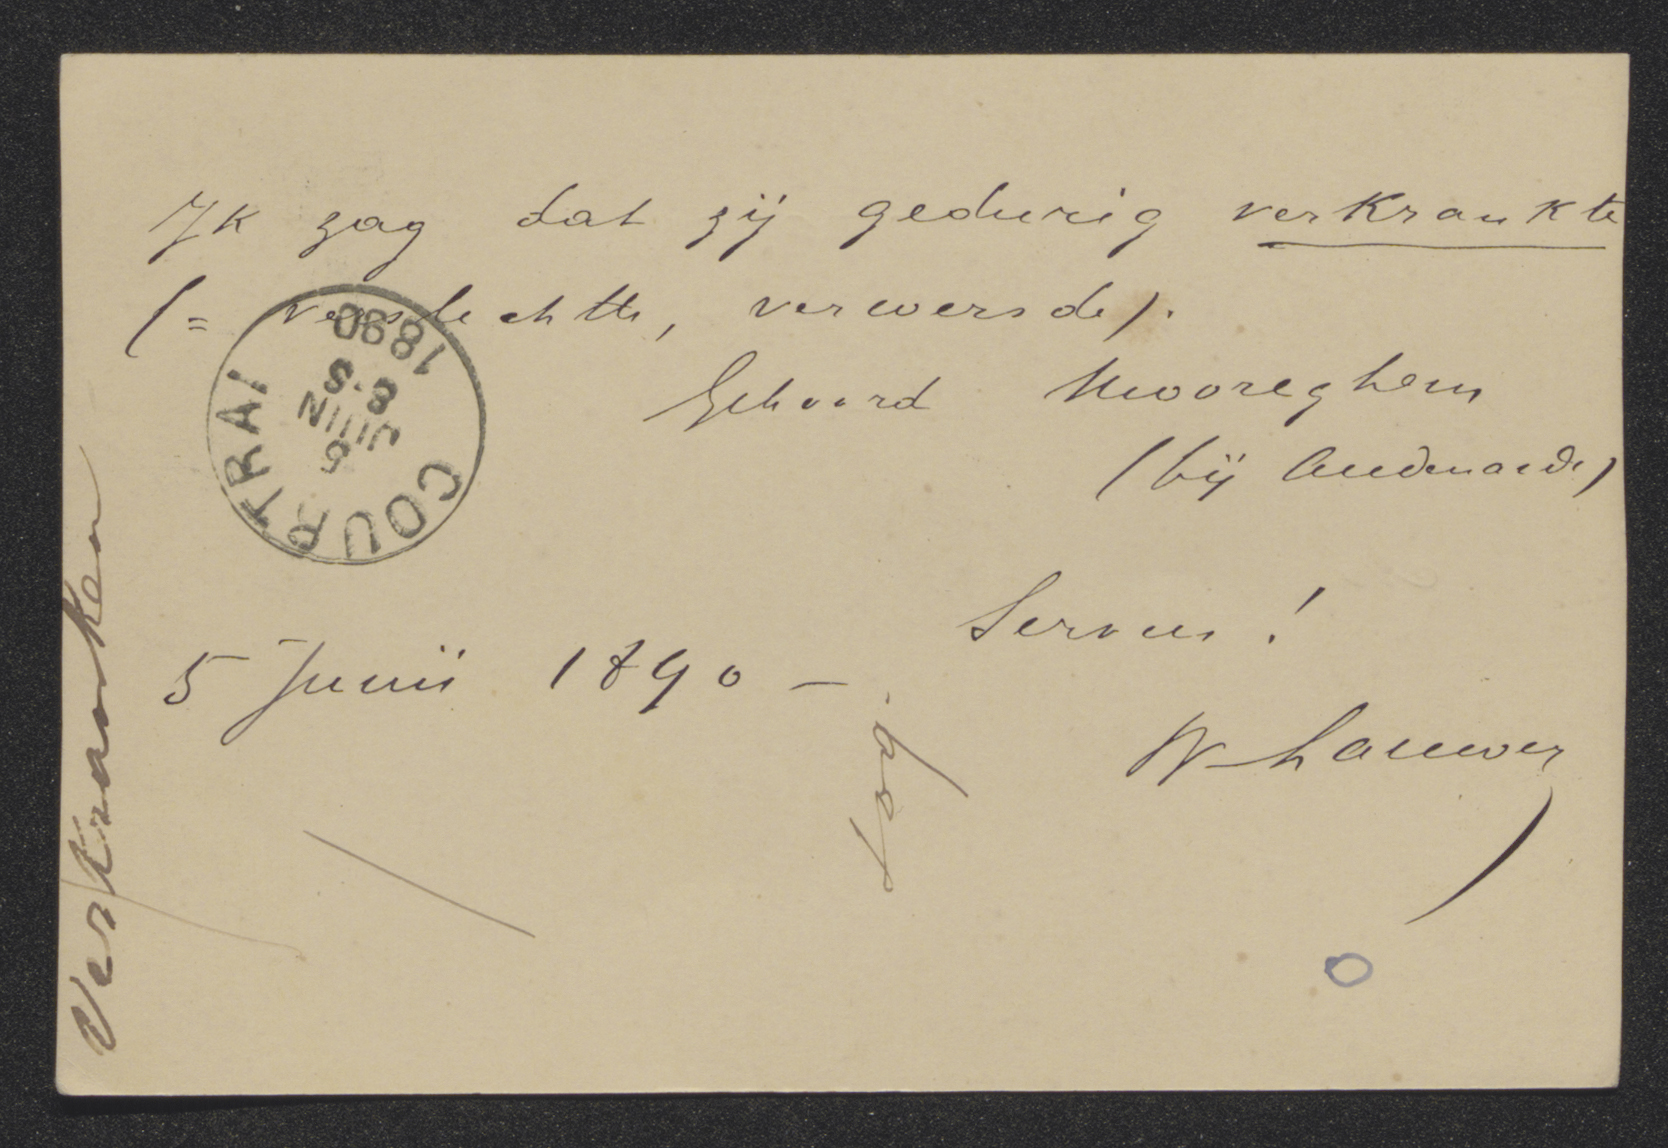 Ik zag dat zij gedurig verkrankte
(= verslechtte, verwersde).
Gehoord Mooreghem
(bij Audenaarde)
Servus!
5 Junii 1890 –
W Lauwers
Verkranken
COURTRAI
5
JUIN
8-S
1890